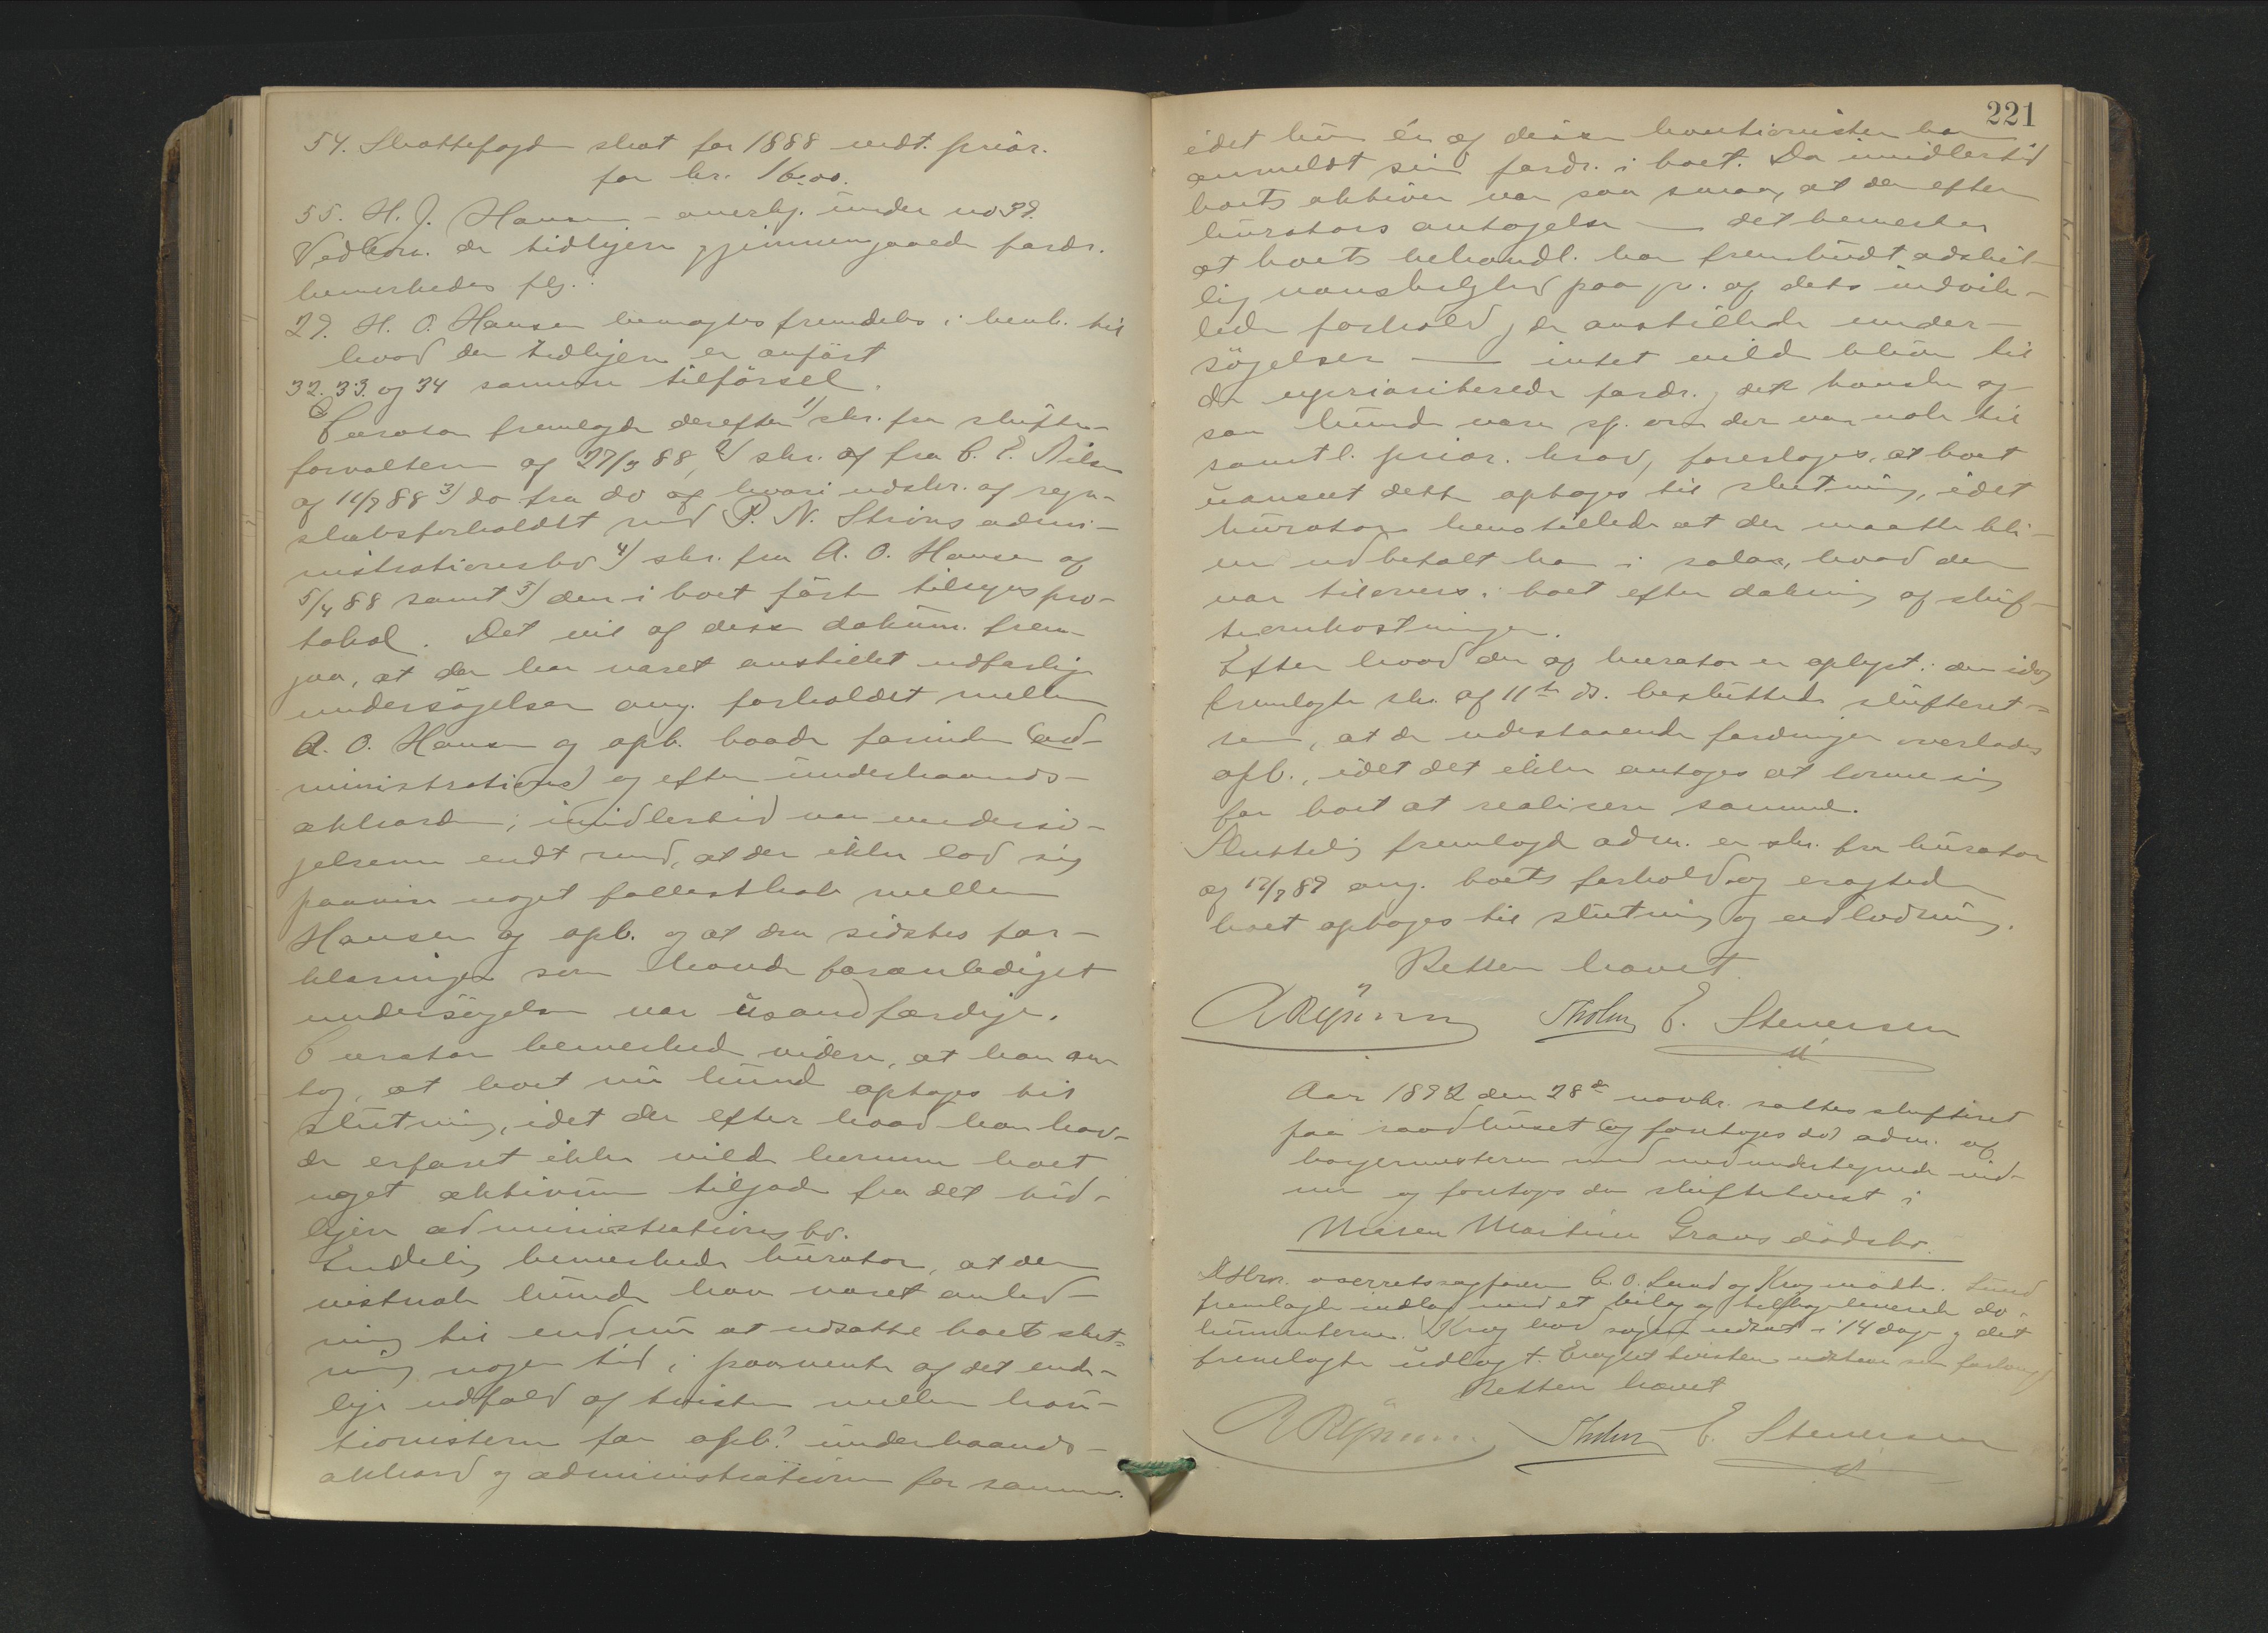 54. Skattefogd skat for 1888 vedt. prior.
for kr. 16.00.
55. H. J. Hansen – anerkj. under no 39.
Vedkom. de tidligere gjennemgaaede fordr.
bemerkedes flg.:
29. H. O. Hansen bemagtes fremdeles i henh. til
hvad der tidligere er anført
32. 33. og 34 samme tilførsel.
Curator fremlagde derefter 1) skr. fra skifte-
forvalteren af 27/3 88, 2) skr. af fra C. E. Nilsen
af 11/7 88 3) do fra do af hvori udskr. af regn-
skabsforholdet med P. N. Strøms admi-
nistrationsbo 4) skr. fra A. O. Hansen af
5/4 88 samt 5) den i boet førte tilsynspro-
tokol. Det vil af disse dokum. frem-
gaa, at der har været anstillet udførlige
undersøgelser ang. forholdet mellem
A. O. Hansen og opb. baade forinden (ad-
ministrations) og efter underhaands-
akkorden; imidlertid var undersø-
gelserne endt med, at der ikke lod sig
paavise noget fællesskab mellem
Hansen og opb. og at den sidstes for-
klaringer som havde foranlediget
undersøgelsen var usandfærdige.
Curator bemerkede videre, at han an-
tog, at boet nu kunde optages til
slutning, idet der efter hvad han hav-
de erfaret ikke vilde komme boet
noget aktivum tilgode fra det tid-
ligere administrationsbo.
Endelig bemerkede kurator, at der
vistnok kunde have været anled-
ning til endnu at udsætte boets slut-
ning nogen tid i paavente af det ende-
lige udfald af tvisten mellem kau-
tionisterne for opb. underhaands-
akkord og administrationen for samme.
221
idet kun én af disse kautionister har
anmeldt sin fordr. i boet. Da imidlertid
boets aktiver var saa smaa, at der efter
kurators antagelse — det bemerkes
at boets behandl. har frembudt adskil-
lig vanskelighed paa gr. af dets indvik-
lede forhold, de anstillede under-
søgelser — intet vilde blive til
de uprioriterede fordr., det kanske og-
saa kunde være sp. om der var nok til
samtl. prior. krav, foresloges, at boet
uanseet dette optages til slutning, idet
kurator henstillede at der maatte bli-
ve udbetalt ham i salær, hvad der
var tilovers i boet efter dækning af skif-
teomkostninger.
Efter hvad der af kurator er oplyst i den idag
fremlagte skr. af 11te ds. besluttede skifteret-
ten, at de udestaaende fordringer overlades
opb., idet det ikke antages at lønne sig
for boet at realisere samme.
Sluttelig fremlagde adm. en skr. fra kurator
af 12/7 89 ang. boets forhold og eragtede
boet optages til slutning og udlodning.
Retten hævet
Tholm E. Stenersen
Aar 1892 den 28de novbr. sattes skifteret
paa raadhuset og foretoges do adm. af
borgermesteren med medundertegnede vid-
ner og foretoges da skiftetvist i
Maren Martine Graus dødsbo.
D'Hrr. overretssagfører C. O. Lund og Krag mødte. Lund
fremlagde indlæg med et bilag og tilbageleverede do-
kumenterne. Krag krav sagen udsat i 14 dage og det
fremlagte udlagt. Eragtet tvisten udstaar som forlangt
Retten hævet
Tholm E. Stenersen